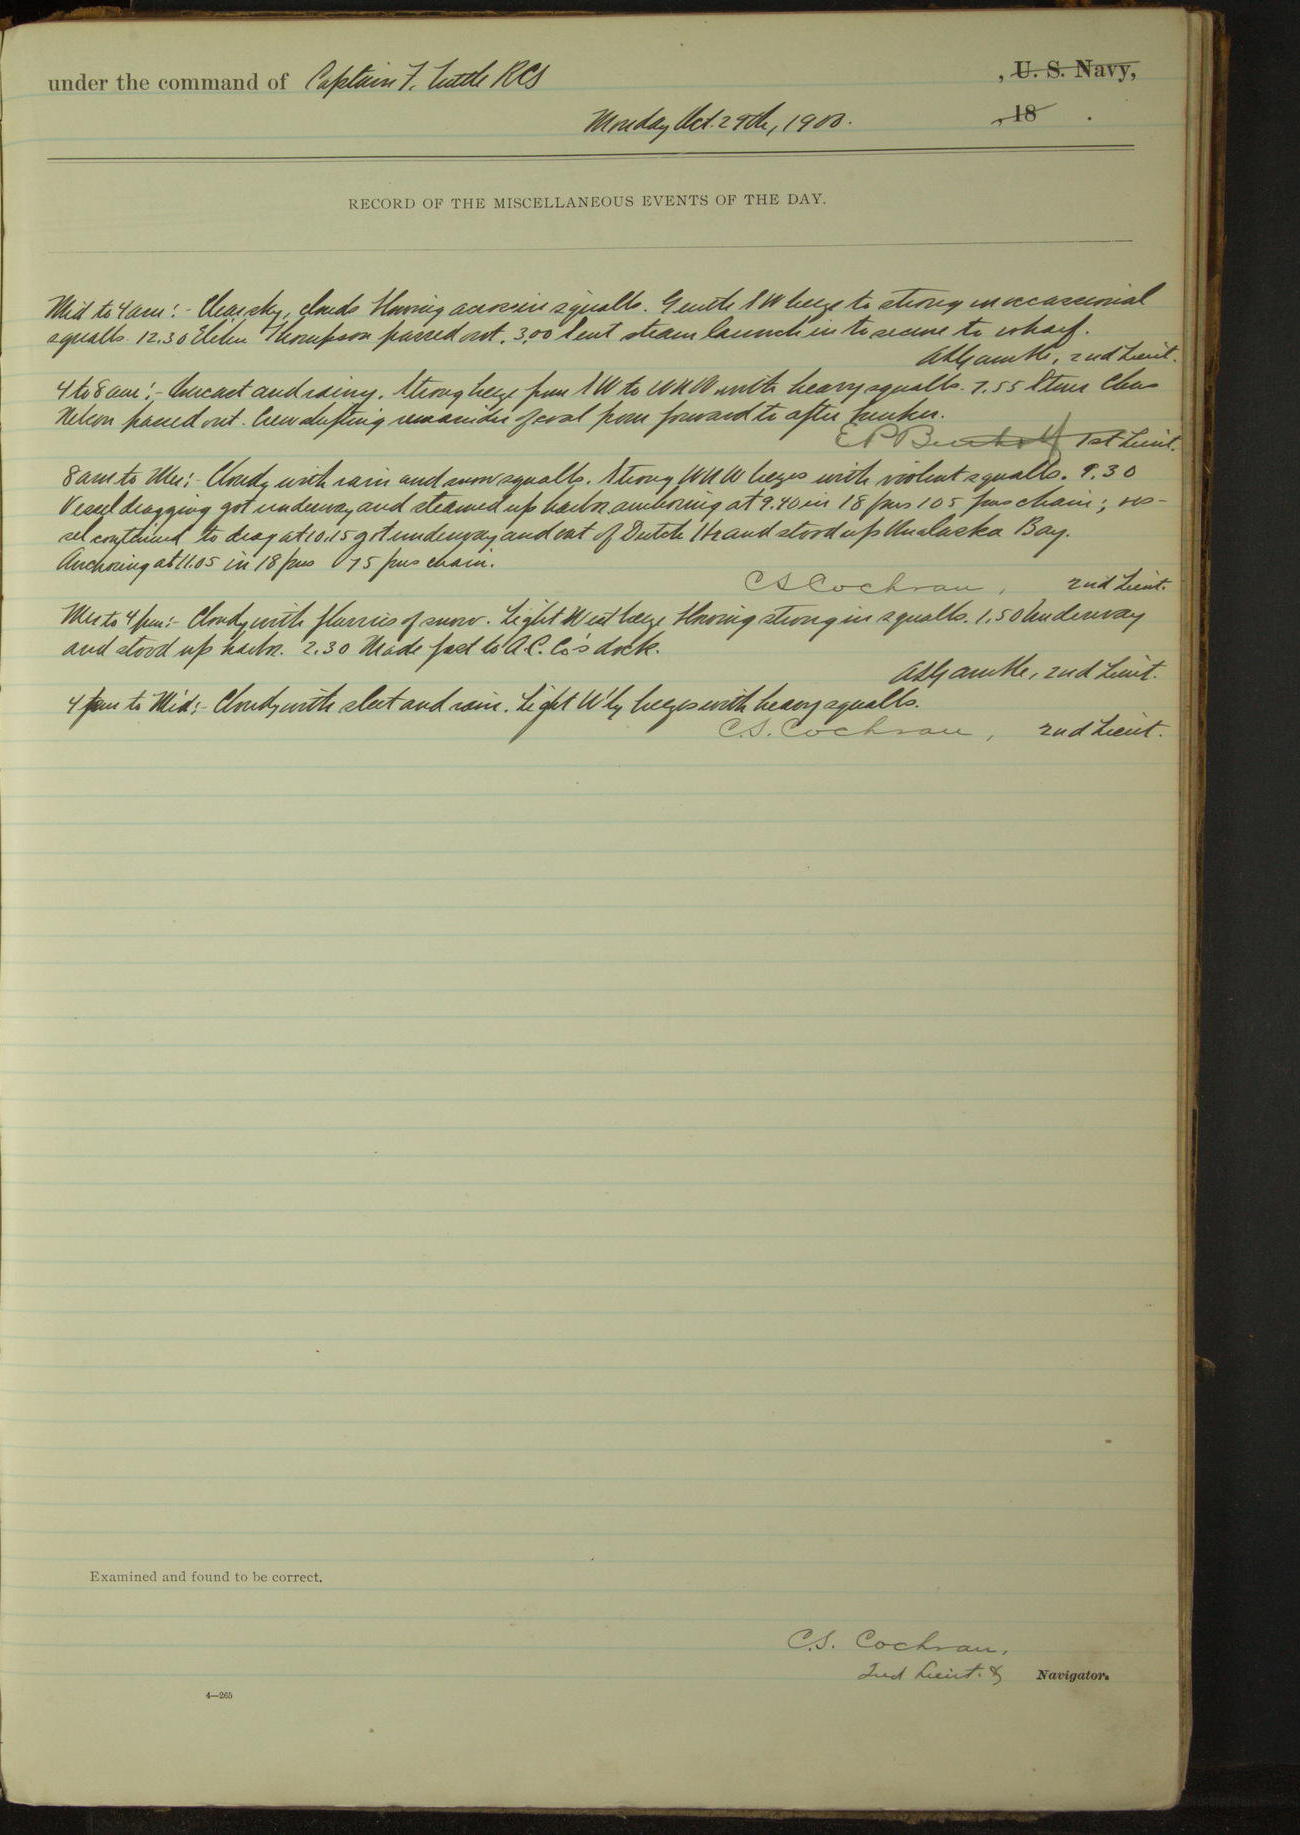 under the command of Captain F. Tuttle RCS , U. S. Navy,
Monday Oct. 29th, 1900. , 18 .
RECORD OF THE MISCELLANEOUS EVENTS OF THE DAY.
Mid to 4 am:- Clear sky, clouds blowing across in squalls. Gentle SW breeze to strong in occassional
squalls. 12.30 Elihu Thompson passed out. 3.00 Sent steam launch in to secure to wharf.
A L Gamble, 2nd Lieut.
4 to 8 am:- Overcast and rainy. Strong breeze from SW to WNW with heavy squalls. 7.55 Stmr Chas
Nelson passed out. Crew shifting remainder of coal from forward to after bunker.
E P Bertholf 1st Lieut.
8 am to Mer:- Cloudy with rain and snow squalls. Strong WNW breezes with violent squalls. 9.30
Vessel dragging got underway and steamed up harbor, anchoring at 9.40 in 18 fms 105 fms chain; ves-
sel continued to drag at 10.15 got underway and out of Dutch Hr and stood up Unalaska Bay.
Anchoring at 11.05 in 18 fms 75 fms chain.
C S Cochran, 2nd Lieut.
Mer to 4 pm:- Cloudy with flurries of snow. Light West breeze blowing strong in squalls. 1.50 Underway
and stood up harbor. 2.30 Made fast to A. C. Co's dock.
A L Gamble, 2nd Lieut.
4 pm to Mid:- Cloudy with sleet and rain. Light W'ly breezes with heavy squalls.
C. S. Cochran, 2nd Lieut.
Examined and found to be correct.
C. S. Cochran,
2nd Lieut. & Navigator.
4—265